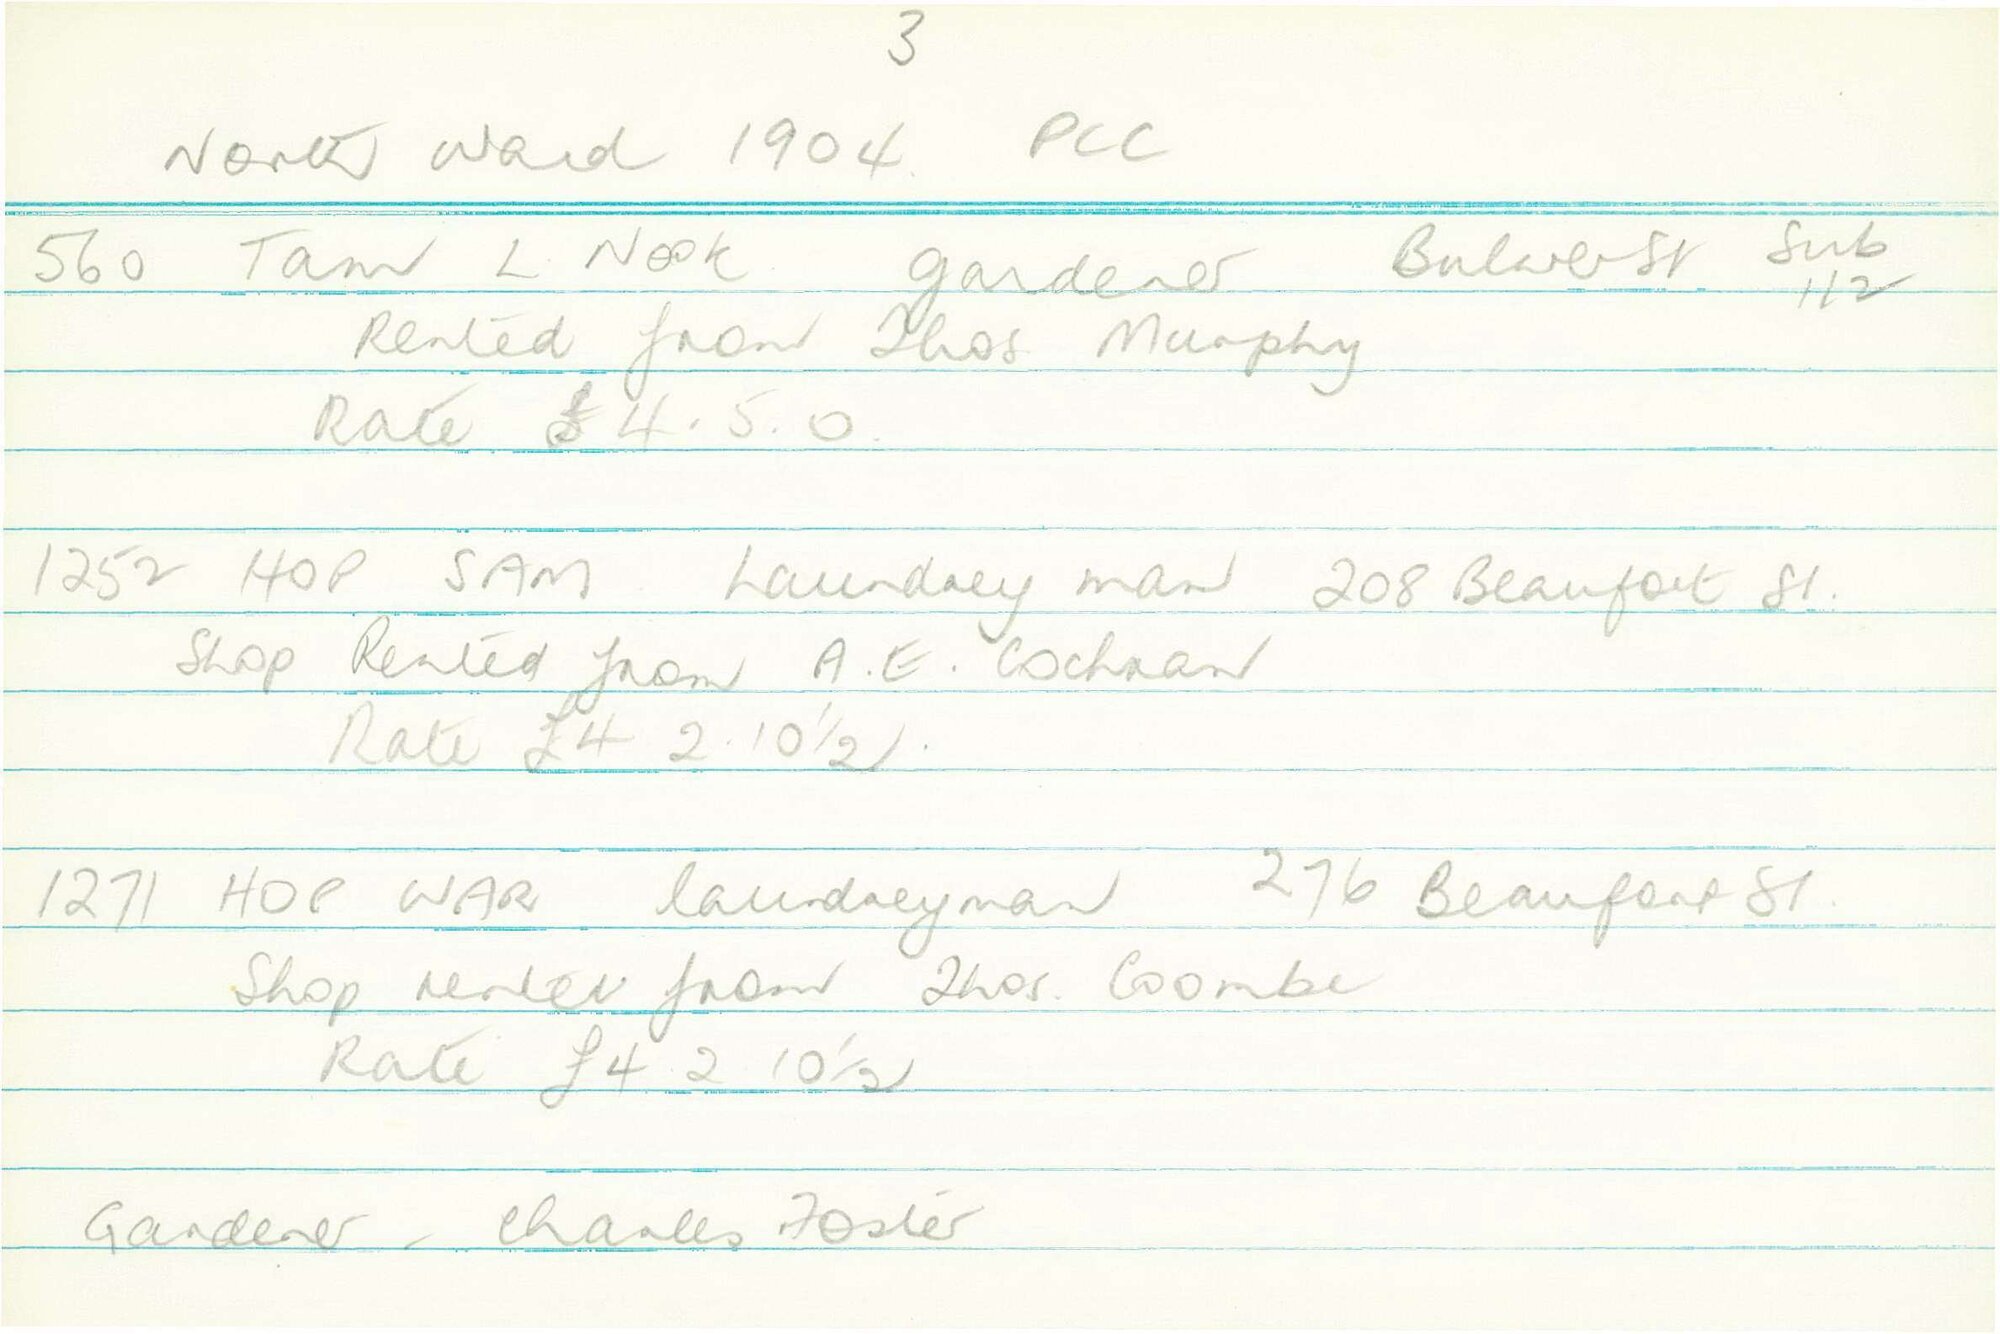 3
North Ward 1904. PCC
560 Tam L. Nook gardener Bulwer St Sub 112
Rented from Thos Murphy
Rate £4.5.0.
1252 HOP SAM Laundrey man 208 Beaufort St.
Shop Rented from A.E. Cochran
Rate £4 2.10 1/2.
1271 HOP WAR laundreyman 276 Beaufort St.
Shop rented from Thos. Coombe
Rate £4 2 10 1/2
Gardener - Charles Foster